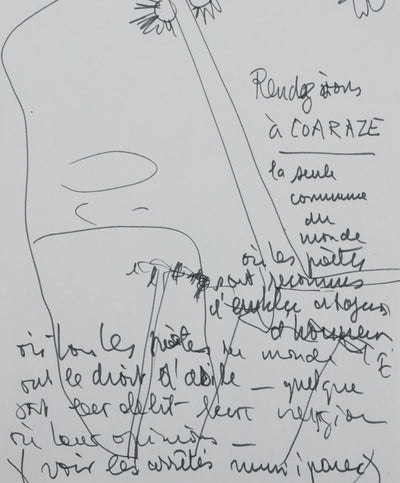 Rendez vous
à COARAZE
la seule
commune
du
monde
où les poètes
sont reconnus
d'emblée citoyens
d'honneur
où tous les poètes du monde
ont le droit d'asile _ quelque
soit leur délit leur religion
où leur opinions _
(voir les arrêtés municipaux)